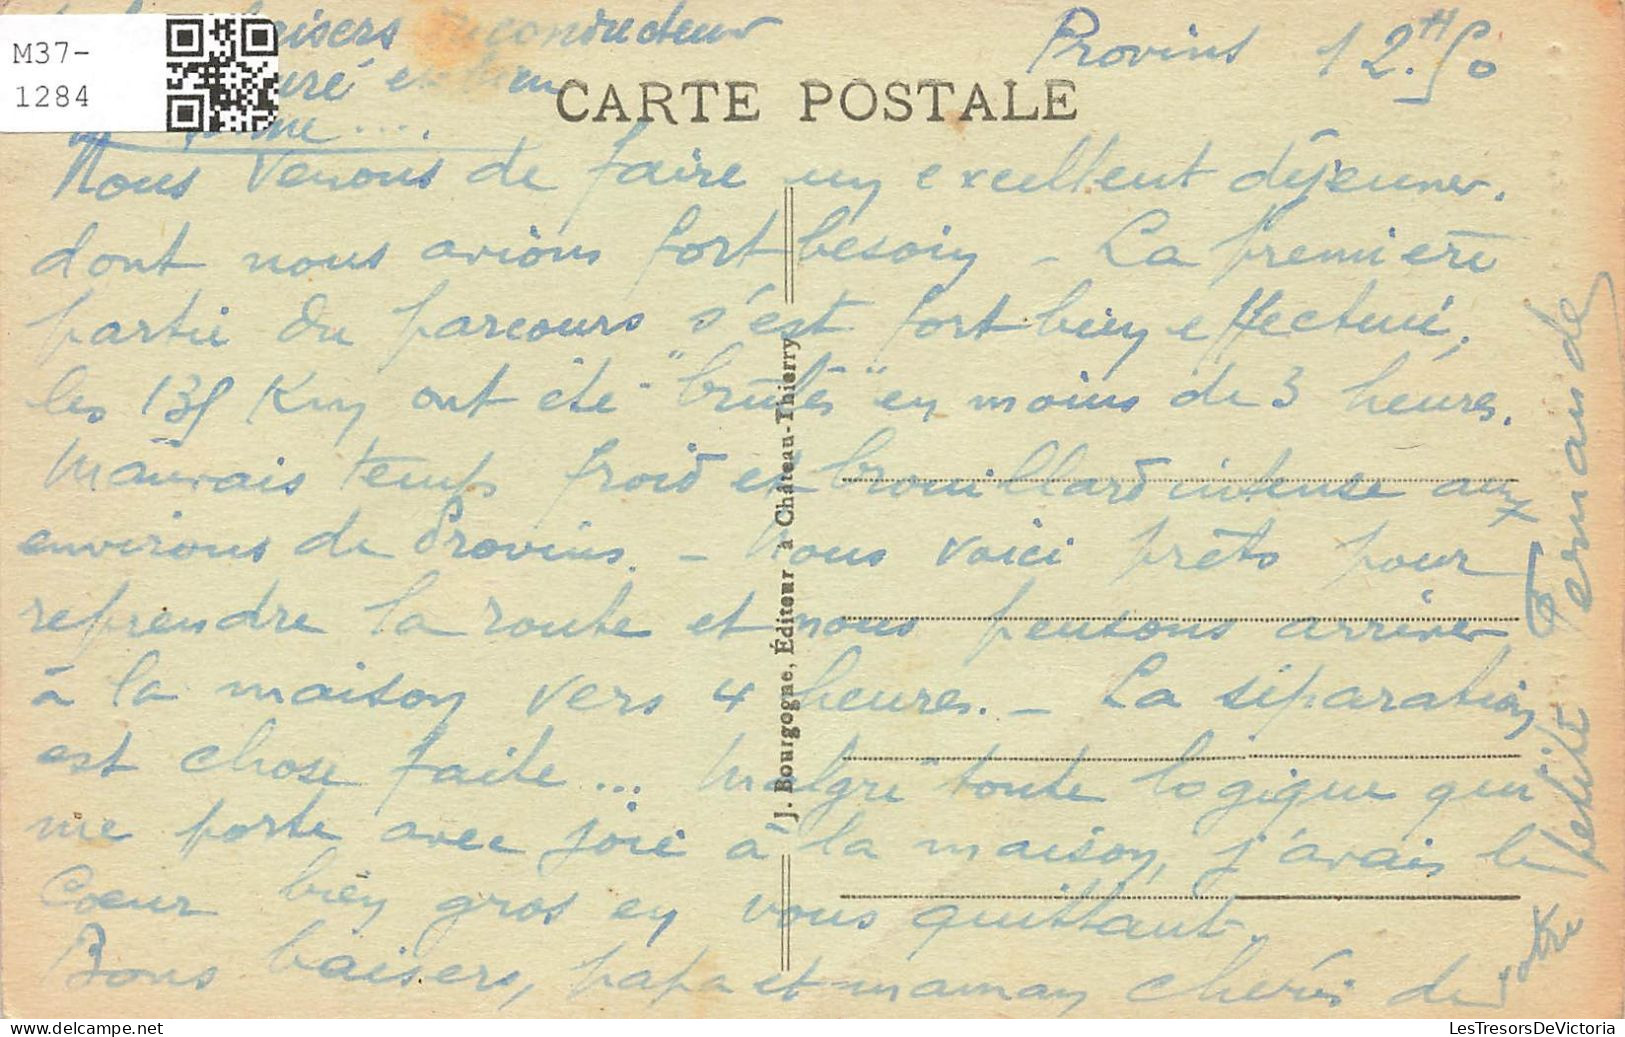 M37-
1284
baisers du conducteur
Provins 12.H50
CARTE POSTALE
Nous venons de faire un excellent déjeuner.
dont nous avions fort besoin – La première
partie du parcours s'est fort bien effectué,
les 135 Km ont été "brûlés" en moins de 3 heures.
Mauvais temps froid et brouillard intense aux
environs de Provins. – Nous voici prêts pour
reprendre la route et nous pensons arriver
à la maison vers 4 heures. – La séparation
est chose faite ... Malgré toute logique qui
me porte avec joie à la maison, j'avais le
Cœur bien gros en vous quittant.
Bons baisers, papa et maman chéris de
votre petite Fernande
J. Bourgogne, Éditeur à Château-Thierry
LesTresorsDeVictoria